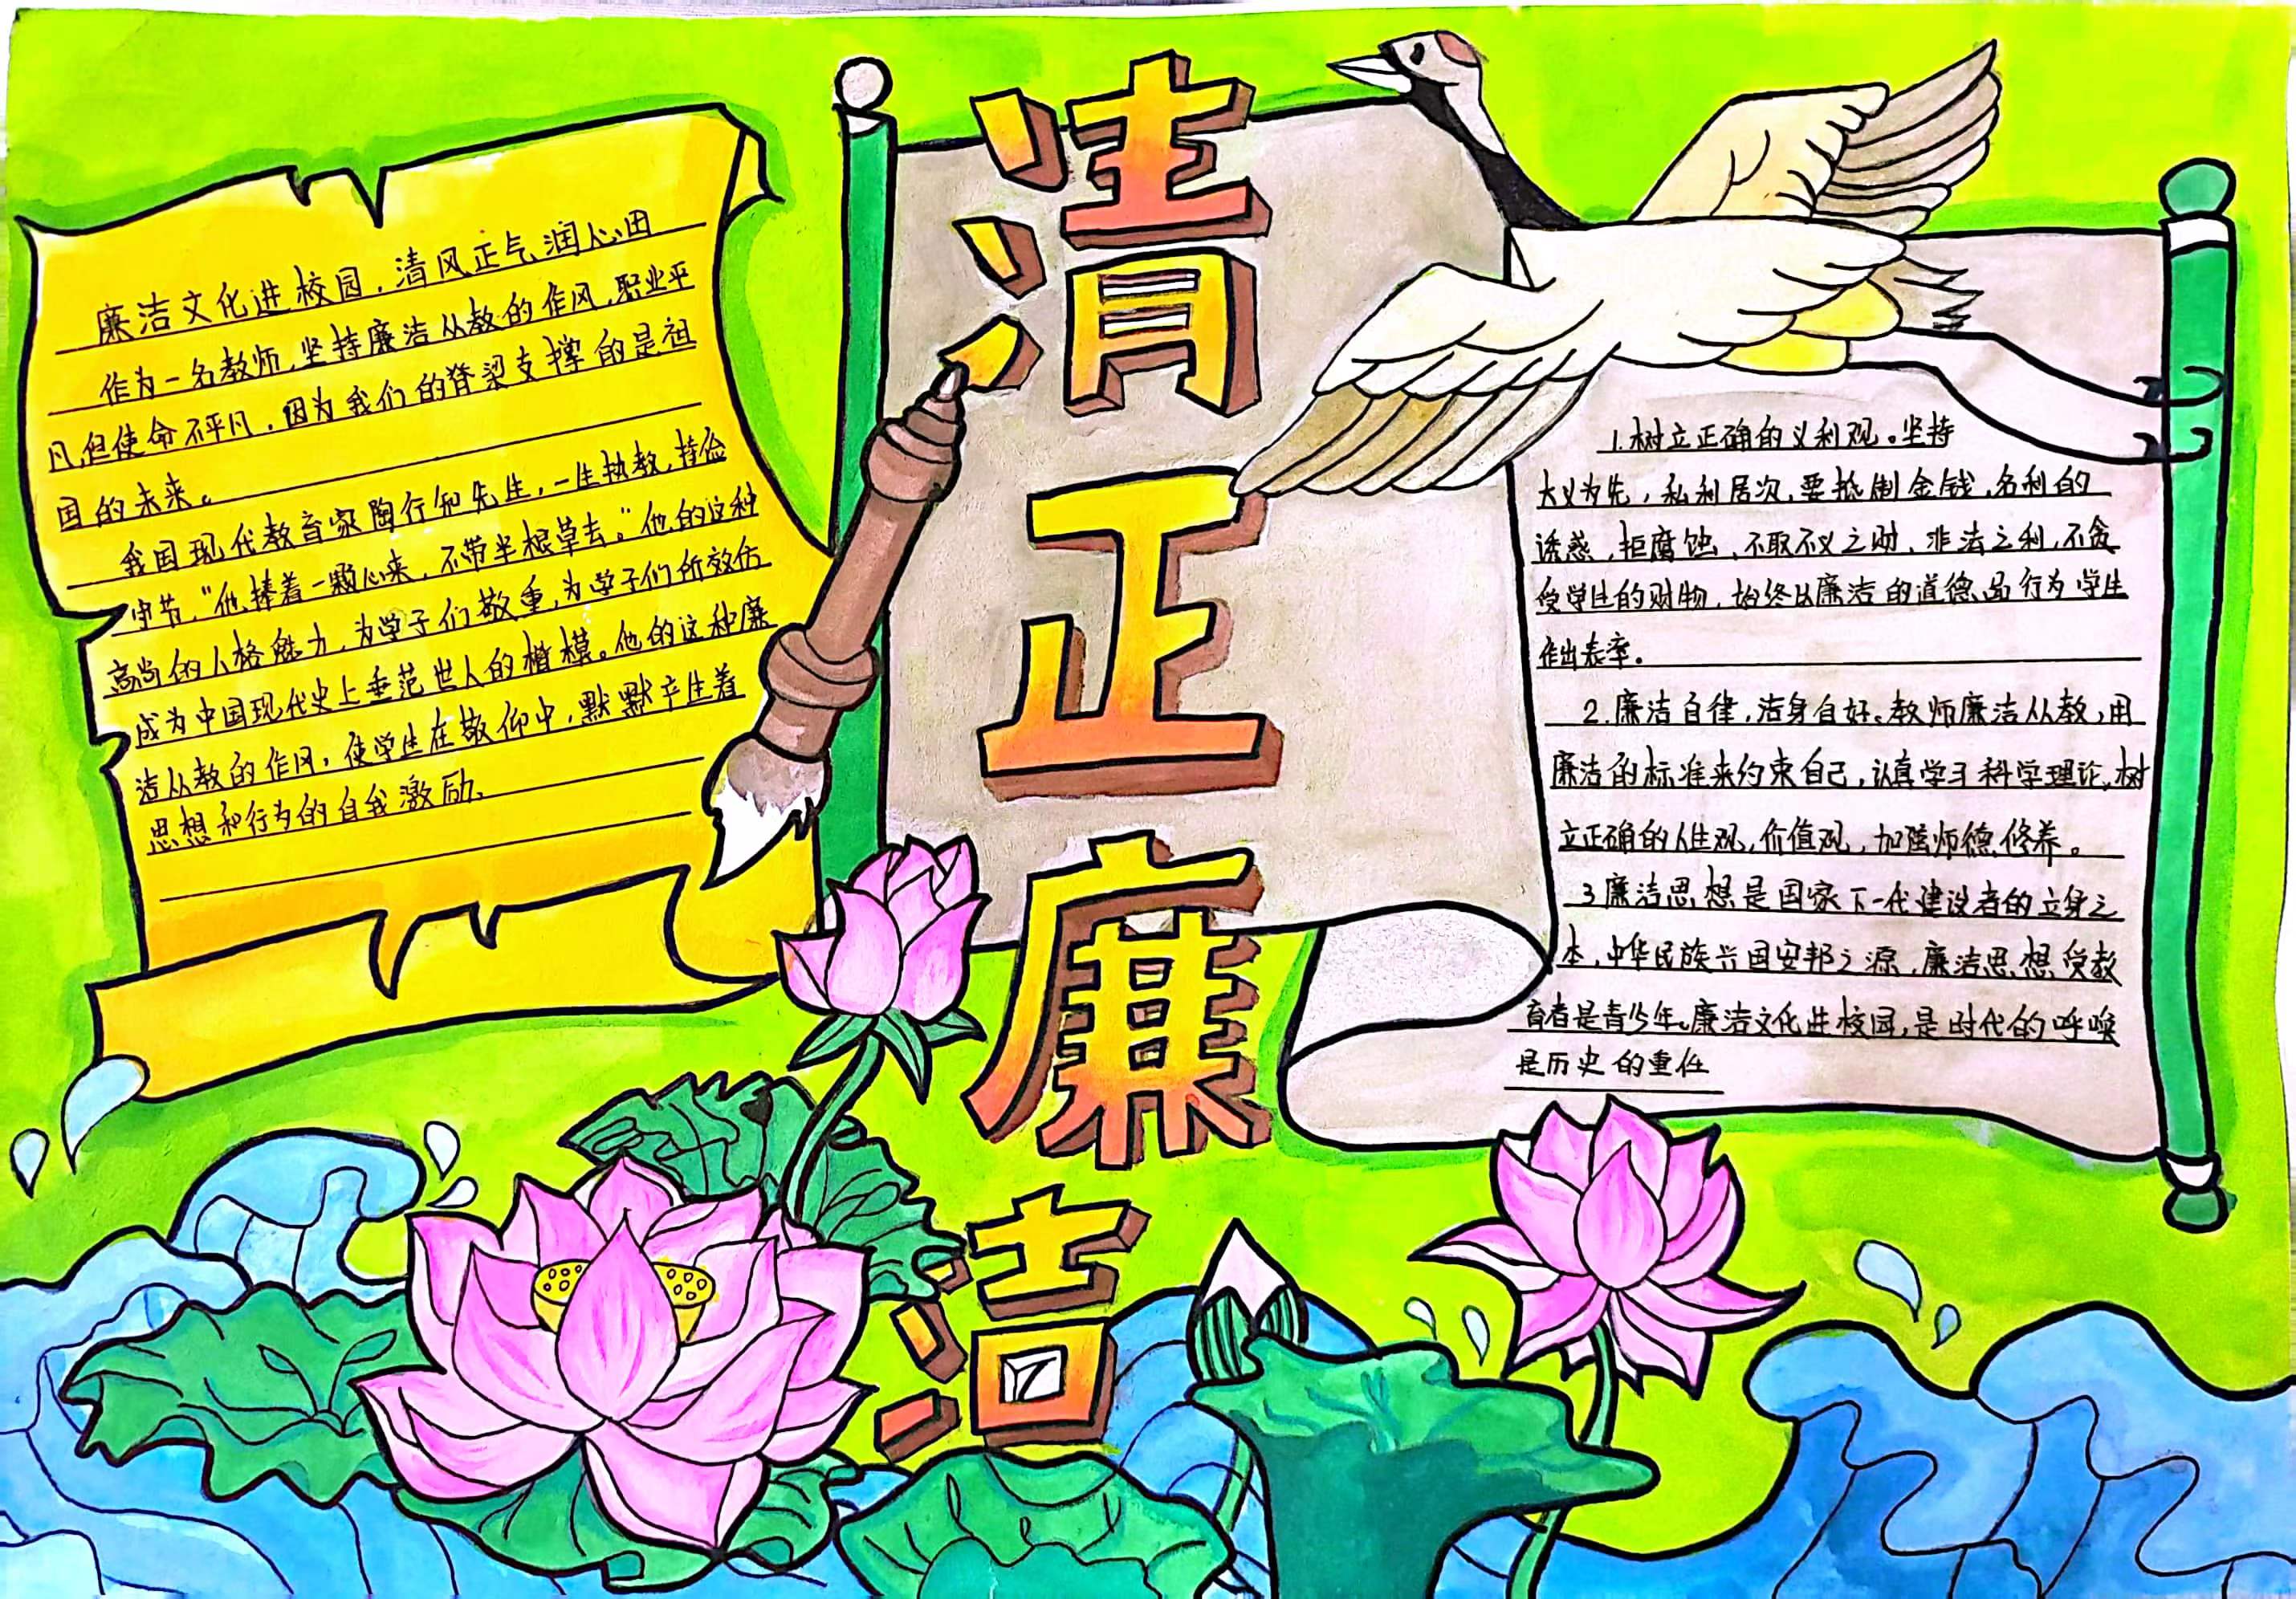 廉洁文化进校园，清风正气润心田
作为一名教师，坚持廉洁从教的作风，职业平
凡，但使命不平凡，因为我们的脊梁支撑的是祖
国的未来。
我国现代教育家陶行知先生，一生执教，持俭
守节，“他捧着一颗心来，不带半根草去。”他的这种
高尚的人格魅力，为学子们敬重，为学子们所效仿
成为中国现代史上垂范世人的楷模。他的这种廉
洁从教的作风，使学生在敬仰中，默默产生着
思想和行为的自我激励、
清
正
廉
洁
1.树立正确的义利观。坚持
大义为先，私利居次，要抵制金钱，名利的
诱惑，拒腐蚀、不取不义之财、非法之利，不贪
受学生的财物，始终以廉洁的道德品行为学生
作出表率。
2.廉洁自律，洁身自好。教师廉洁从教，用
廉洁的标准来约束自己，认真学习科学理论，树
立正确的人生观，价值观，加强师德修养。
3廉洁思想是国家下一代建设者的立身之
本，中华民族兴国安邦之源，廉洁思想受教
育者是青少年。廉洁文化进校园，是时代的呼唤
是历史的重任